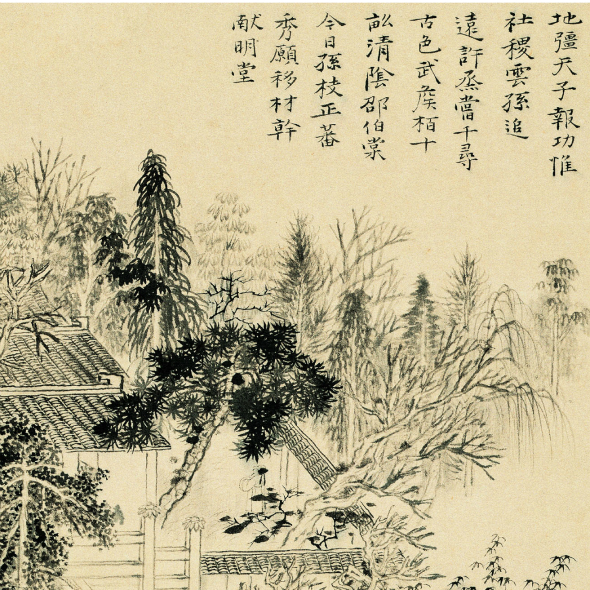 地彊天子報功惟
社稷雲孫追
遠許烝嘗千尋
古色武矦柏十
畝清陰邵伯棠
今日孫枝正蕃
秀願移材幹
献明堂